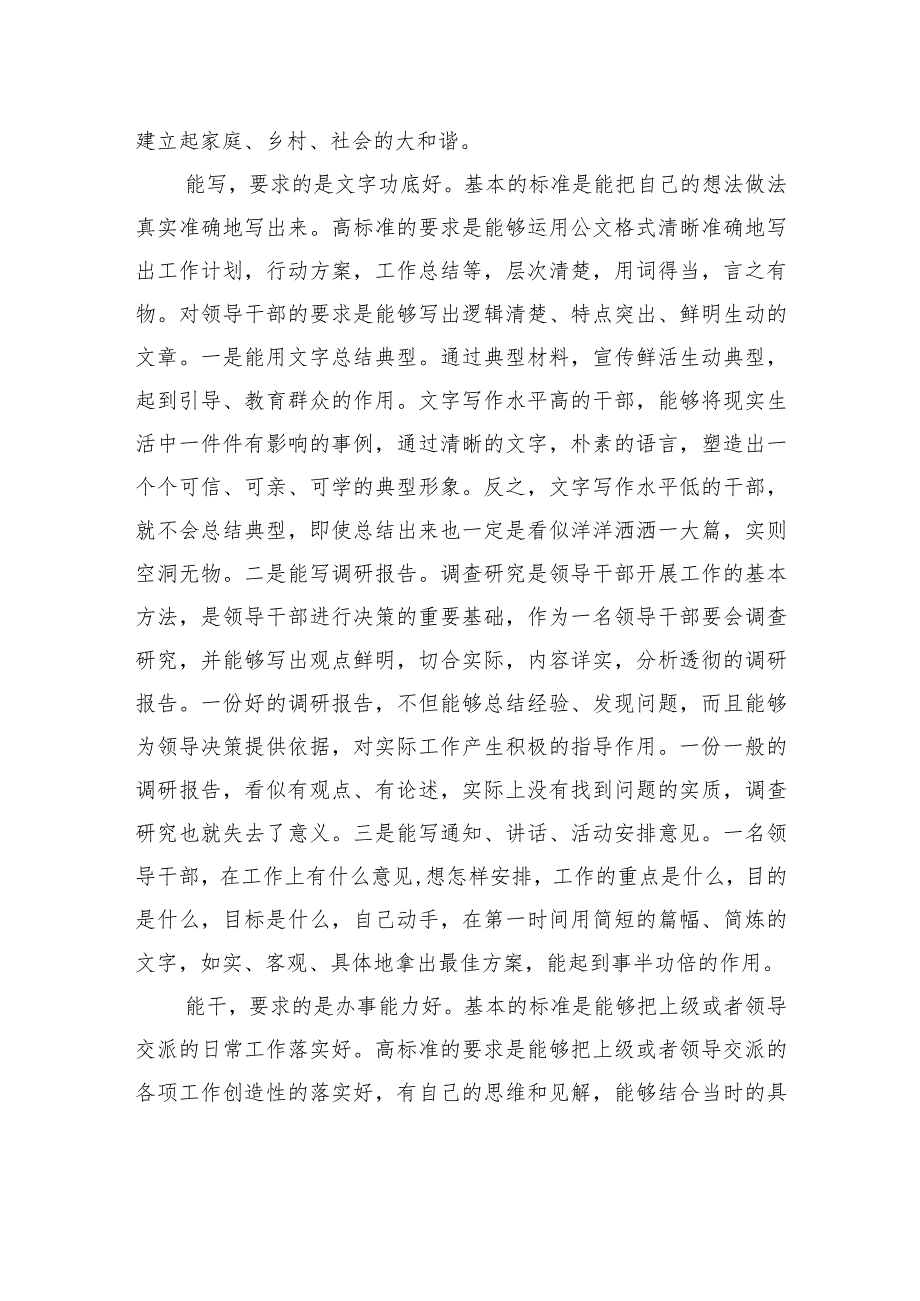 建立起家庭、乡村、社会的大和谐。
能写，要求的是文字功底好。基本的标准是能把自己的想法做法
真实准确地写出来。高标准的要求是能够运用公文格式清晰准确地写
出工作计划，行动方案，工作总结等，层次清楚，用词得当，言之有
物。对领导干部的要求是能够写出逻辑清楚、特点突出、鲜明生动的
文章。一是能用文字总结典型。通过典型材料，宣传鲜活生动典型，
起到引导、教育群众的作用。文字写作水平高的干部，能够将现实生
活中一件件有影响的事例，通过清晰的文字，朴素的语言，塑造出一
个个可信、可亲、可学的典型形象。反之，文字写作水平低的干部，
就不会总结典型，即使总结出来也一定是看似洋洋洒洒一大篇，实则
空洞无物。二是能写调研报告。调查研究是领导干部开展工作的基本
方法，是领导干部进行决策的重要基础，作为一名领导干部要会调查
研究，并能够写出观点鲜明，切合实际，内容详实，分析透彻的调研
报告。一份好的调研报告，不但能够总结经验、发现问题，而且能够
为领导决策提供依据，对实际工作产生积极的指导作用。一份一般的
调研报告，看似有观点、有论述，实际上没有找到问题的实质，调查
研究也就失去了意义。三是能写通知、讲话、活动安排意见。一名领
导干部，在工作上有什么意见,想怎样安排，工作的重点是什么，目的
是什么，目标是什么，自己动手，在第一时间用简短的篇幅、简炼的
文字，如实、客观、具体地拿出最佳方案，能起到事半功倍的作用。
能干，要求的是办事能力好。基本的标准是能够把上级或者领导
交派的日常工作落实好。高标准的要求是能够把上级或者领导交派的
各项工作创造性的落实好，有自己的思维和见解，能够结合当时的具